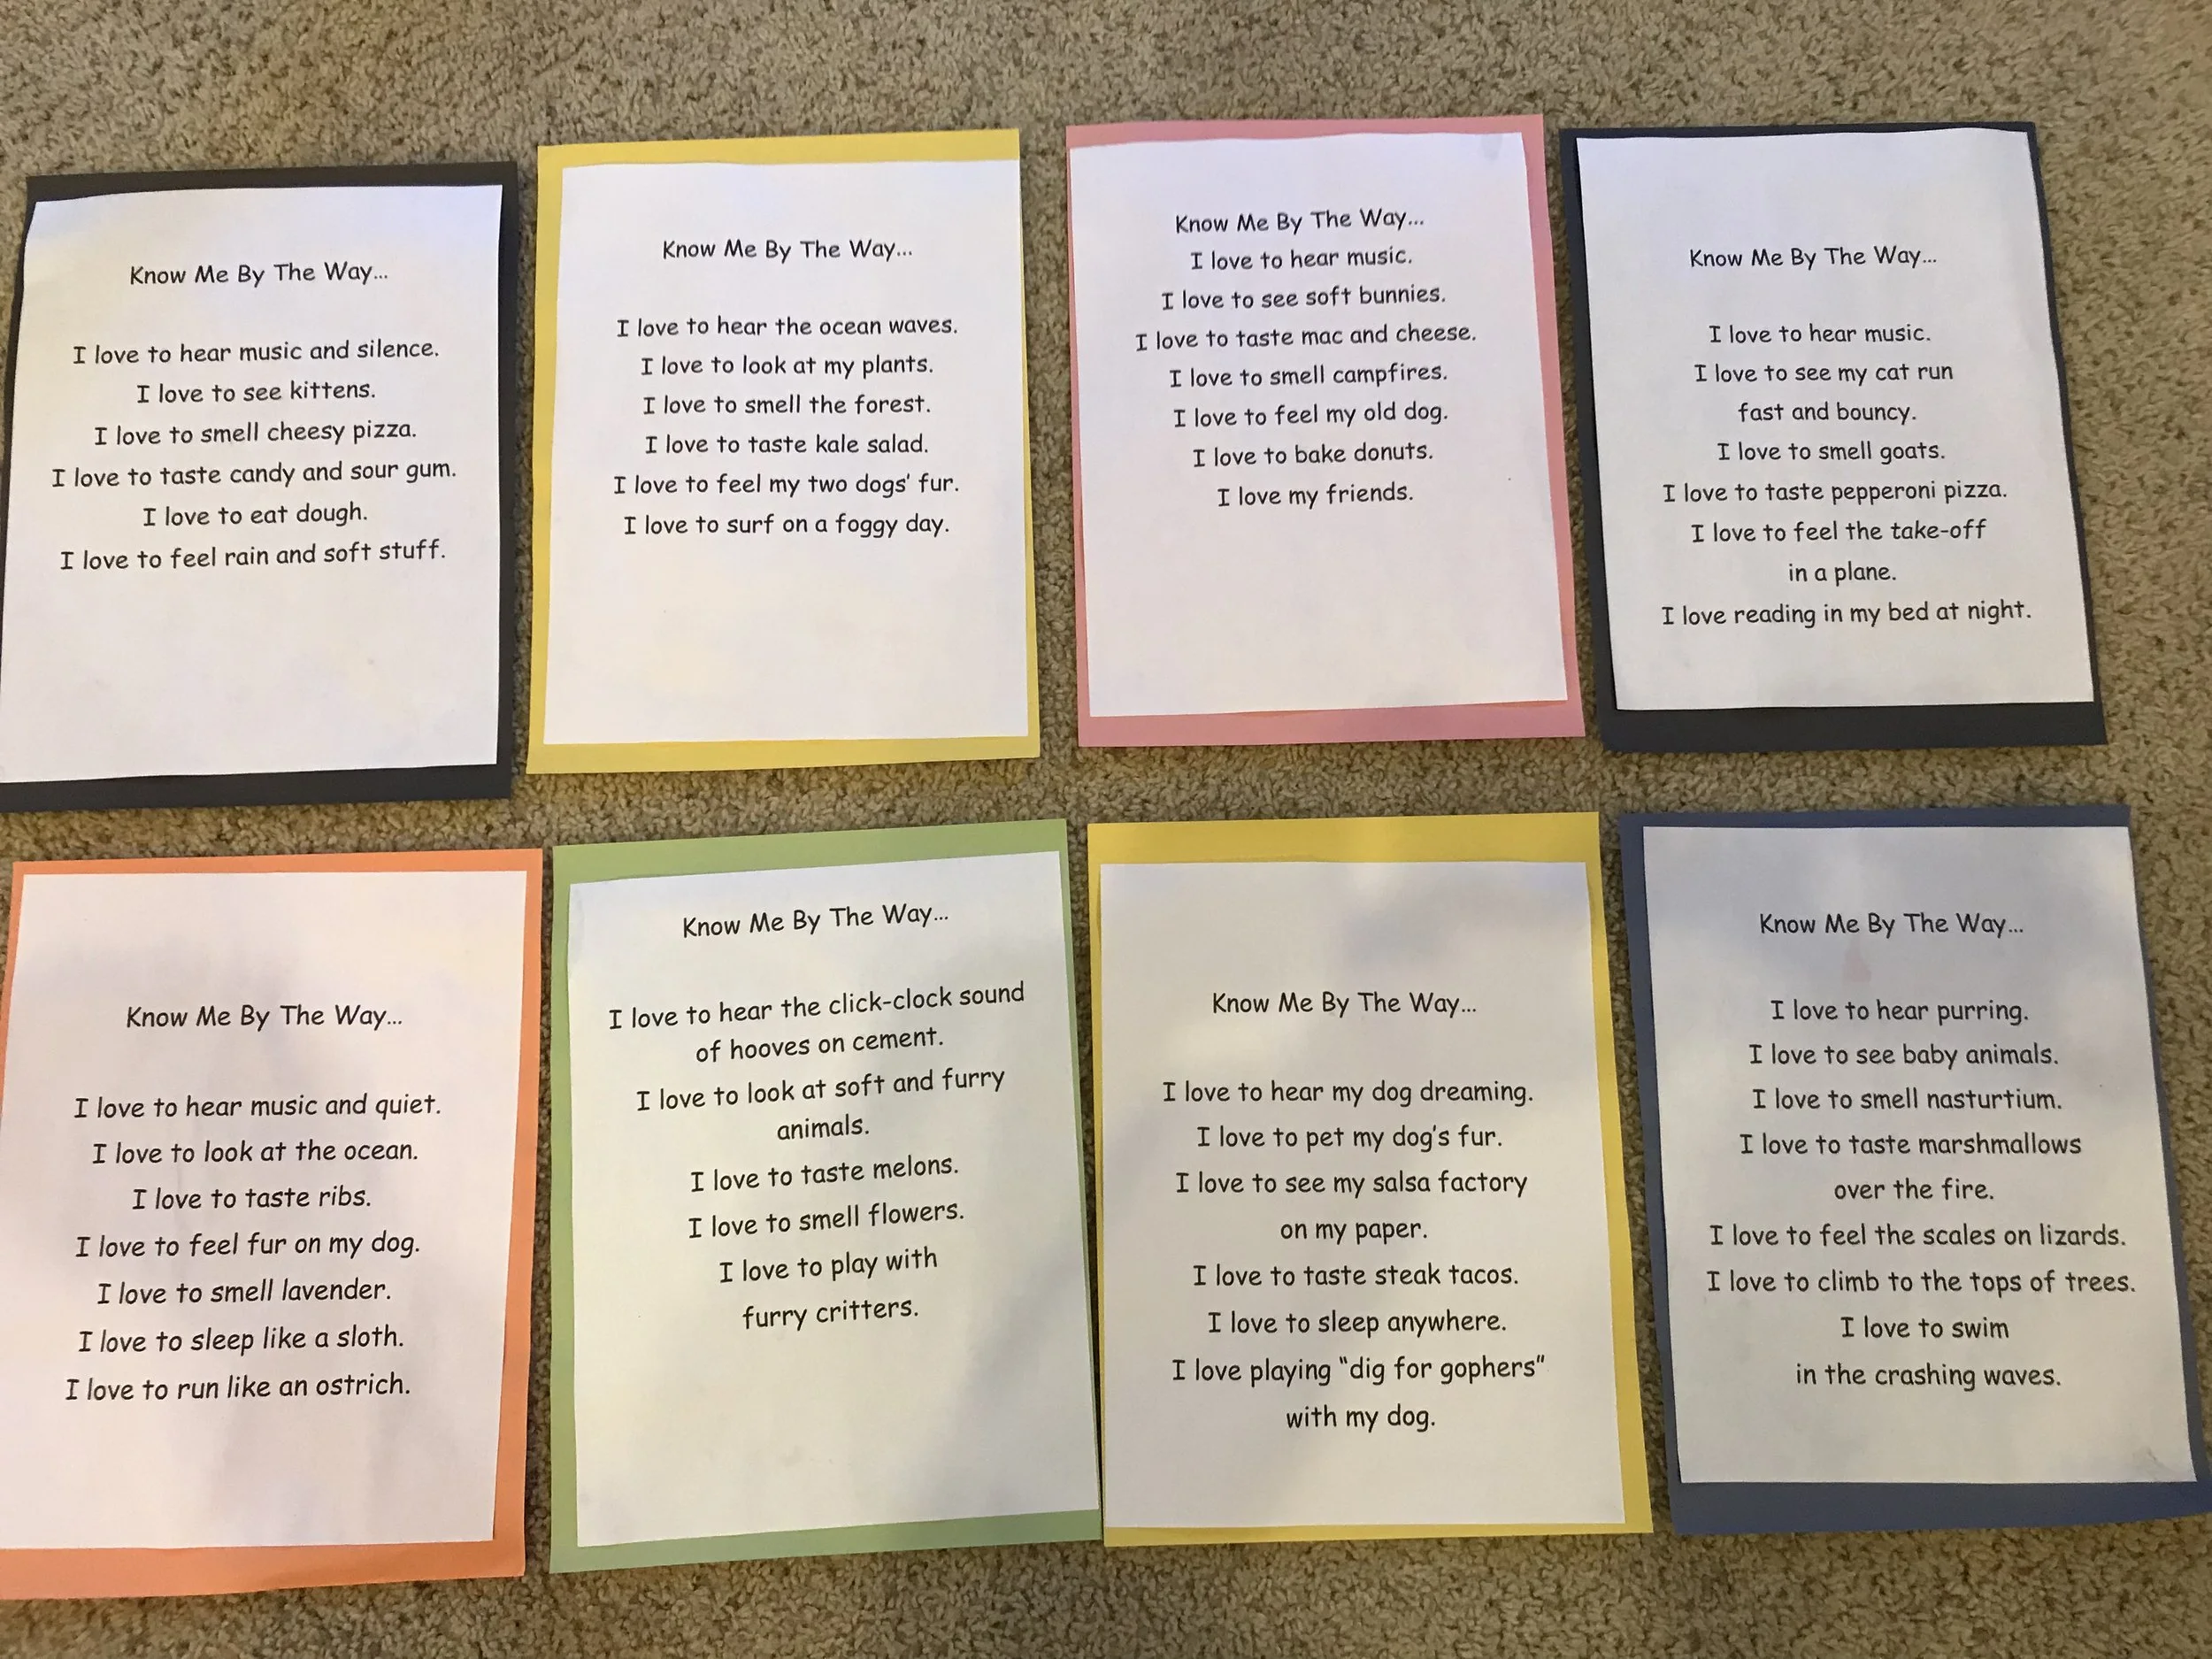 Know Me By The Way...
I love to hear music and silence.
I love to see kittens.
I love to smell cheesy pizza.
I love to taste candy and sour gum.
I love to eat dough.
I love to feel rain and soft stuff.
Know Me By The Way...
I love to hear the ocean waves.
I love to look at my plants.
I love to smell the forest.
I love to taste kale salad.
I love to feel my two dogs' fur.
I love to surf on a foggy day.
Know Me By The Way...
I love to hear music.
I love to see soft bunnies.
I love to taste mac and cheese.
I love to smell campfires.
I love to feel my old dog.
I love to bake donuts.
I love my friends.
Know Me By The Way...
I love to hear music.
I love to see my cat run
fast and bouncy.
I love to smell goats.
I love to taste pepperoni pizza.
I love to feel the take-off
in a plane.
I love reading in my bed at night.
Know Me By The Way...
I love to hear music and quiet.
I love to look at the ocean.
I love to taste ribs.
I love to feel fur on my dog.
I love to smell lavender.
I love to sleep like a sloth.
I love to run like an ostrich.
Know Me By The Way...
I love to hear the click-clock sound
of hooves on cement.
I love to look at soft and furry
animals.
I love to taste melons.
I love to smell flowers.
I love to play with
furry critters.
Know Me By The Way...
I love to hear my dog dreaming.
I love to pet my dog's fur.
I love to see my salsa factory
on my paper.
I love to taste steak tacos.
I love to sleep anywhere.
I love playing "dig for gophers"
with my dog.
Know Me By The Way...
I love to hear purring.
I love to see baby animals.
I love to smell nasturtium.
I love to taste marshmallows
over the fire.
I love to feel the scales on lizards.
I love to climb to the tops of trees.
I love to swim
in the crashing waves.